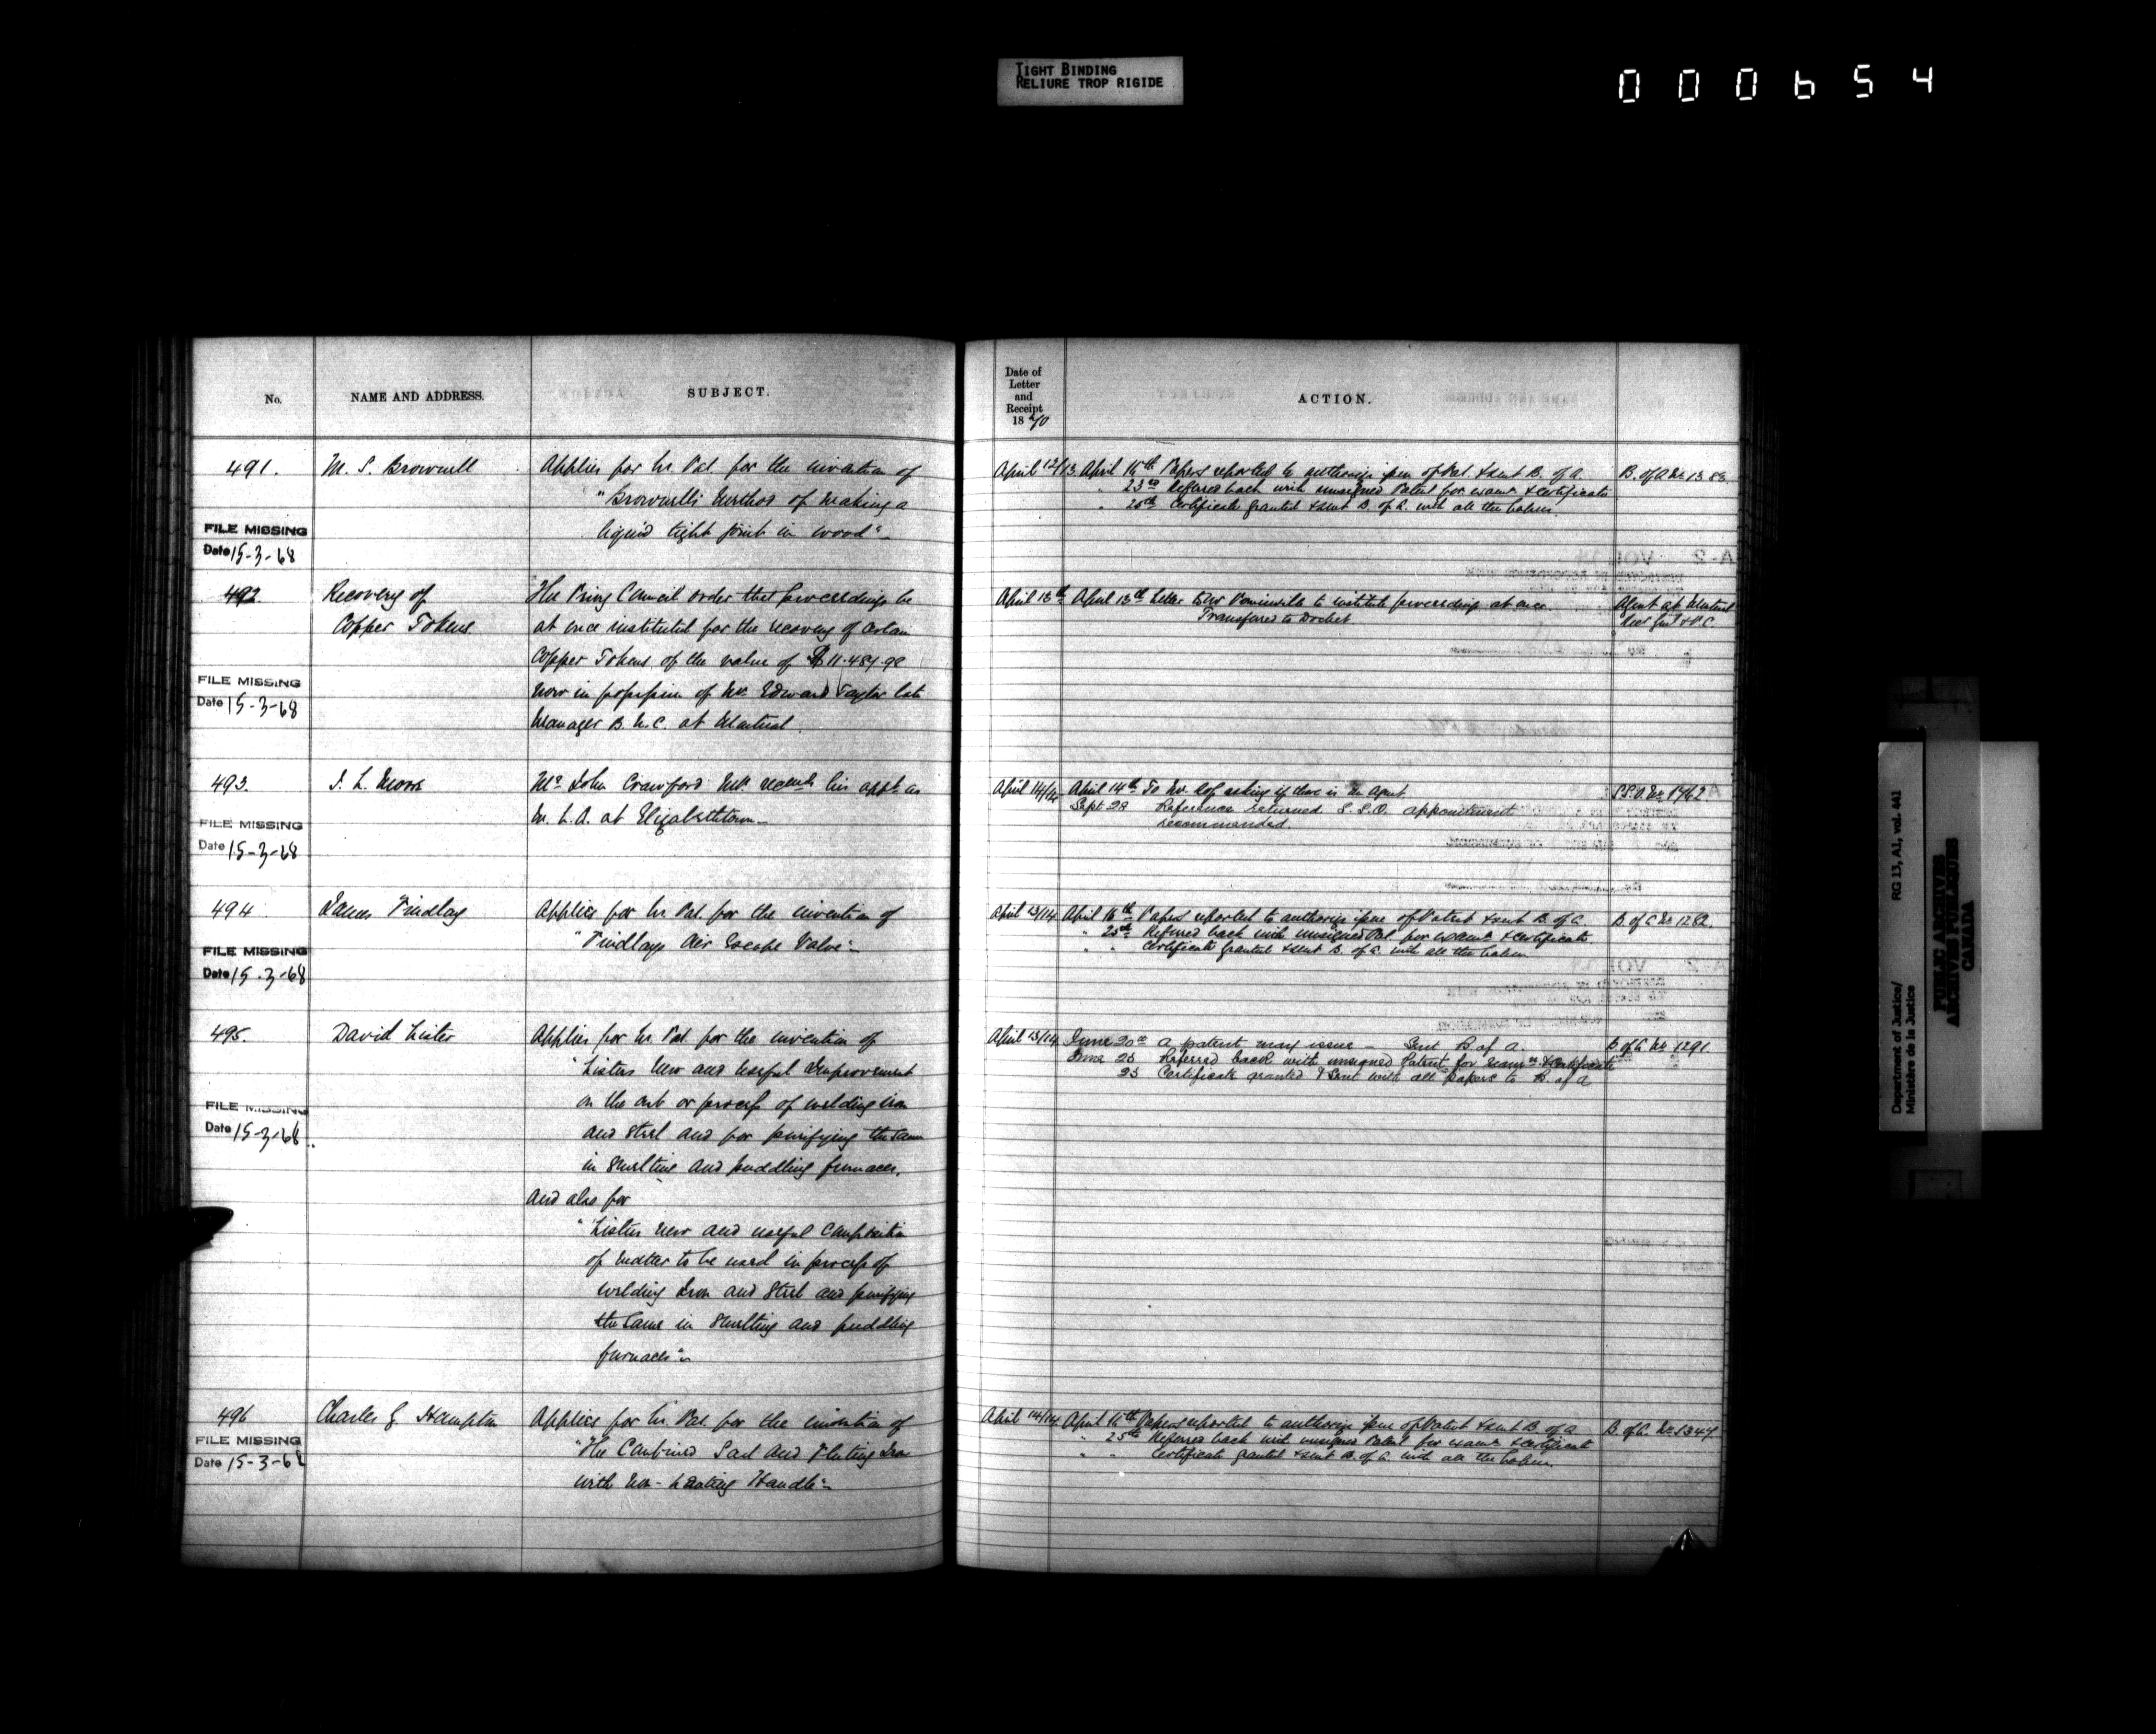 TIGHT BINDING
RELIURE TROP RIGIDE
000654
No.
NAME AND ADDRESS.
SUBJECT.
491.
M. S. Brownell
Applies for Lr. Pat. for the invention of
"Brownell's Method of making a
liquid tight joint in wood"
FILE MISSING
Date 15-3-68
492
Recovery of
Copper Tokens
The Privy Council order that proceedings be
at once instituted for the recovery of certain
Copper Tokens of the value of $11.484.98
now in possession of Mr. Edward Taylor late
Manager B. U. C. at Montreal.
FILE MISSING
Date 15-3-68
493.
J. L. Moore
Mr. John Crawford M.P. recmds his appt. as
M. L. A. at Elizabethtown
FILE MISSING
Date 15-3-68
494
James Findlay
Applies for Lr. Pat. for the invention of
"Findlays Air Escape Valve"
FILE MISSING
Date 15-3-68
495.
David Lister
Applies for Lr. Pat. for the invention of
"Listers New and Useful Improvement
on the art or process of welding iron
and steel and for purifying the same
in smelting and puddling furnaces.
And also for
"Listers new and useful Composition
of matter to be used in process of
welding Iron and Steel and purifying
the same in smelting and puddling
furnaces"
FILE MISSING
Date 15-3-68
496
Charles G. Hampton
Applies for Lr. Pat. for the invention of
"The Combined Sad and Fluting Iron
with Non-heating Handle"
FILE MISSING
Date 15-3-68
Date of
Letter
and
Receipt
1870
ACTION.
April 12/13
April 16th Papers reported to authorize issue of Pat. & sent B. of A.
B. of A No. 13
" 23rd Referred back with unsigned Patent for exam. & certificate
" 25th Certificate granted & sent B. of A. with all the papers.
April 13th
April 13th Letter to Mr to institute proceedings at once
Transferred to Docket
Agent at Montreal
& P.C.
April 14/14
April 14th To Mr. asking if there is an Agent.
S.S.O. No. 1762
Sept 28 Reference returned S.S.O. appointment
recommended.
April 13/14
April 16th Papers reported to authorize issue of Patent & sent B. of A.
B. of A No 1282.
" 25th Referred back with unsigned Pat. for exam. & certificate
" " Certificate granted & sent B. of A. with all the papers
April 13/14
June 20th A patent may issue - Sent B of A.
B of A No. 1291
June 25 Referred back with unsigned Patent for exam. & certificate
25 Certificate granted & Sent with all papers to B. of A
April 14/14
April 16th Papers reported to authorize issue of Patent & sent B. of A
B. of A. No. 1347
" 25th Referred back with unsigned Patent for exam. & certificate
" " Certificate granted & sent B. of A. with all the papers.
Department of Justice/
Ministère de la Justice
RG 13, A1, vol. 441
PUBLIC ARCHIVES
ARCHIVES PUBLIQUES
CANADA